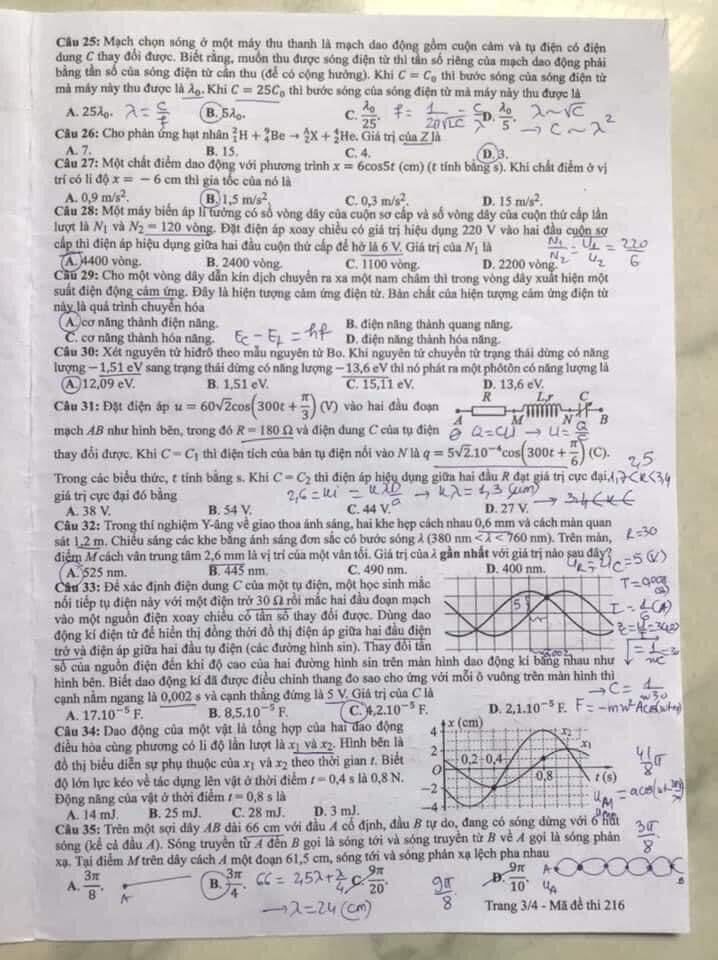 Câu 25: Mạch chọn sóng ở một máy thu thanh là mạch dao động gồm cuộn cảm và tụ điện có điện
dung C thay đổi được. Biết rằng, muốn thu được sóng điện từ thì tần số riêng của mạch dao động phải
bằng tần số của sóng điện từ cần thu (để có cộng hưởng). Khi C = C₀ thì bước sóng của sóng điện từ
mà máy này thu được là λ₀. Khi C = 25C₀ thì bước sóng của sóng điện từ mà máy này thu được là
A. 25λ₀. λ = c/f B. 5λ₀. C. λ₀/25. f = 1/2π√LC = c/λ D. λ₀/5. λ ~ √C
→ C ~ λ²
Câu 26: Cho phản ứng hạt nhân ²₁H + ⁹₄Be → ᴬ_Z X + ⁴₂He. Giá trị của Z là
A. 7. B. 15. C. 4. D. 3.
Câu 27: Một chất điểm dao động với phương trình x = 6cos5t (cm) (t tính bằng s). Khi chất điểm ở vị
trí có li độ x = − 6 cm thì gia tốc của nó là
A. 0,9 m/s². B. 1,5 m/s². C. 0,3 m/s². D. 15 m/s².
Câu 28: Một máy biến áp lí tưởng có số vòng dây của cuộn sơ cấp và số vòng dây của cuộn thứ cấp lần
lượt là N₁ và N₂ = 120 vòng. Đặt điện áp xoay chiều có giá trị hiệu dụng 220 V vào hai đầu cuộn sơ
cấp thì điện áp hiệu dụng giữa hai đầu cuộn thứ cấp để hở là 6 V. Giá trị của N₁ là
A. 4400 vòng. B. 2400 vòng. C. 1100 vòng. D. 2200 vòng. N₁/N₂ = U₁/U₂ = 220/6
Câu 29: Cho một vòng dây dẫn kín dịch chuyển ra xa một nam châm thì trong vòng dây xuất hiện một
suất điện động cảm ứng. Đây là hiện tượng cảm ứng điện từ. Bản chất của hiện tượng cảm ứng điện từ
này là quá trình chuyển hóa
A. cơ năng thành điện năng. B. điện năng thành quang năng.
C. cơ năng thành hóa năng. D. điện năng thành hóa năng.
E_C − E_L = hf
Câu 30: Xét nguyên tử hiđrô theo mẫu nguyên tử Bo. Khi nguyên tử chuyển từ trạng thái dừng có năng
lượng −1,51 eV sang trạng thái dừng có năng lượng −13,6 eV thì nó phát ra một phôtôn có năng lượng là
A. 12,09 eV. B. 1,51 eV. C. 15,11 eV. D. 13,6 eV.
Câu 31: Đặt điện áp u = 60√2cos(300t + π/3) (V) vào hai đầu đoạn
R L,r C
A M N B
mạch AB như hình bên, trong đó R = 180 Ω và điện dung C của tụ điện
Q = CU → U = Q/C
thay đổi được. Khi C = C₁ thì điện tích của bản tụ điện nối vào N là q = 5√2.10⁻⁴cos(300t + π/6) (C).
2,5
Trong các biểu thức, t tính bằng s. Khi C = C₂ thì điện áp hiệu dụng giữa hai đầu R đạt giá trị cực đại,
1,7 < k < 3,4
giá trị cực đại đó bằng
2,6 = ki = kλD/a → kλ = 1,3 (μm)
A. 38 V. B. 54 V. C. 44 V. D. 27 V.
Câu 32: Trong thí nghiệm Y-âng về giao thoa ánh sáng, hai khe hẹp cách nhau 0,6 mm và cách màn quan
sát 1,2 m. Chiếu sáng các khe bằng ánh sáng đơn sắc có bước sóng λ (380 nm < λ < 760 nm). Trên màn,
R = 30
điểm M cách vân trung tâm 2,6 mm là vị trí của một vân tối. Giá trị của λ gần nhất với giá trị nào sau đây?
A. 525 nm. B. 445 nm. C. 490 nm. D. 400 nm.
U_R = U_C = 5 (V)
Câu 33: Để xác định điện dung C của một tụ điện, một học sinh mắc
nối tiếp tụ điện này với một điện trở 30 Ω rồi mắc hai đầu đoạn mạch
vào một nguồn điện xoay chiều có tần số thay đổi được. Dùng dao
động kí điện tử để hiển thị đồng thời đồ thị điện áp giữa hai đầu điện
trở và điện áp giữa hai đầu tụ điện (các đường hình sin). Thay đổi tần
số của nguồn điện đến khi độ cao của hai đường hình sin trên màn hình dao động kí bằng nhau như
hình bên. Biết dao động kí đã được điều chỉnh thang đo sao cho ứng với mỗi ô vuông trên màn hình thì
cạnh nằm ngang là 0,002 s và cạnh thẳng đứng là 5 V. Giá trị của C là
→ C = 1/ω30
A. 17.10⁻⁵ F. B. 8,5.10⁻⁵ F. C. 4,2.10⁻⁵ F. D. 2,1.10⁻⁵ F.
Câu 34: Dao động của một vật là tổng hợp của hai dao động
điều hòa cùng phương có li độ lần lượt là x₁ và x₂. Hình bên là
đồ thị biểu diễn sự phụ thuộc của x₁ và x₂ theo thời gian t. Biết
độ lớn lực kéo về tác dụng lên vật ở thời điểm t = 0,4 s là 0,8 N.
Động năng của vật ở thời điểm t = 0,8 s là
A. 14 mJ. B. 25 mJ. C. 28 mJ. D. 3 mJ.
x (cm)
4
2
0
−2
−4
0,2 0,4
0,8
x₂
x₁
t (s)
Câu 35: Trên một sợi dây AB dài 66 cm với đầu A cố định, đầu B tự do, đang có sóng dừng với 6 nút
sóng (kể cả đầu A). Sóng truyền từ A đến B gọi là sóng tới và sóng truyền từ B về A gọi là sóng phản
xạ. Tại điểm M trên dây cách A một đoạn 61,5 cm, sóng tới và sóng phản xạ lệch pha nhau
3π/8
A. 3π/8. B. 3π/4. C. 9π/20. D. 9π/10.
66 = 2,5λ + λ/4
→ λ = 24 (cm)
9π/8
Trang 3/4 - Mã đề thi 216